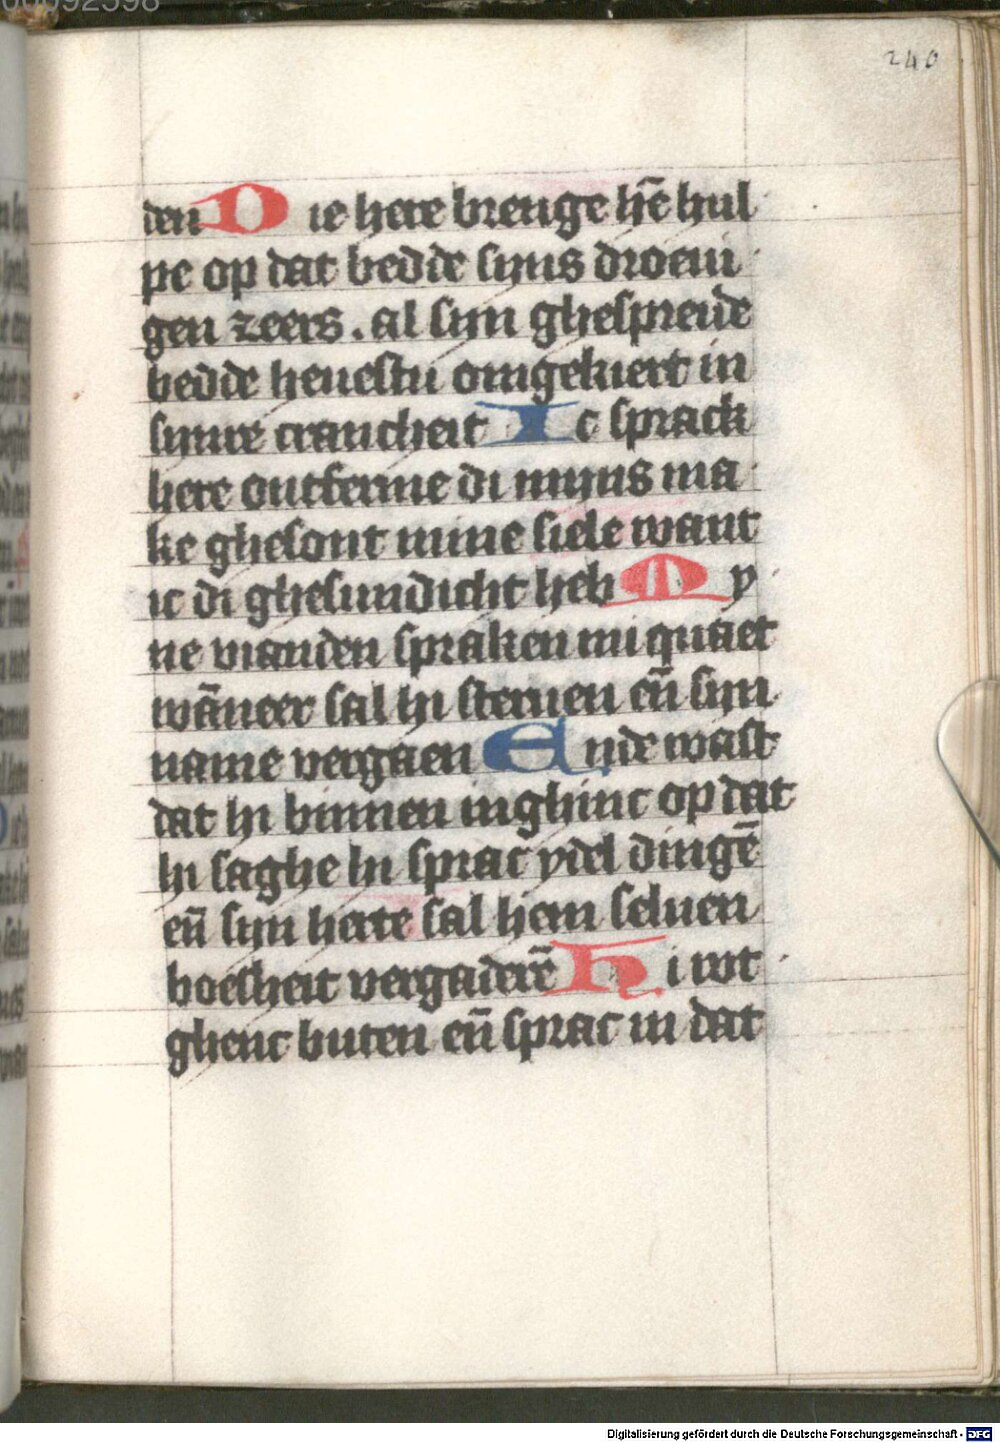 00092598
240
den Die here brenge hē hul
pe op dat bedde sijns droeui
gen zeers. al sijn ghespreide
bedde heuestu omgekiert in
sijnre crancheit Ic sprack
here ontferme di mijns ma
ke ghesont mine siele want
ic di ghesundicht heb My
ne vianden spraken mi quaet
wāneer sal hi steruen eñ sijn
name vergaen Ende wast
dat hi binnen inghinc op dat
hi saghe hi sprac ydel dingē
eñ sijn herte sal hem seluen
boesheit vergaderē Hi wt
ghenc buten eñ sprac in dat
Digitalisierung gefördert durch die Deutsche Forschungsgemeinschaft - DFG